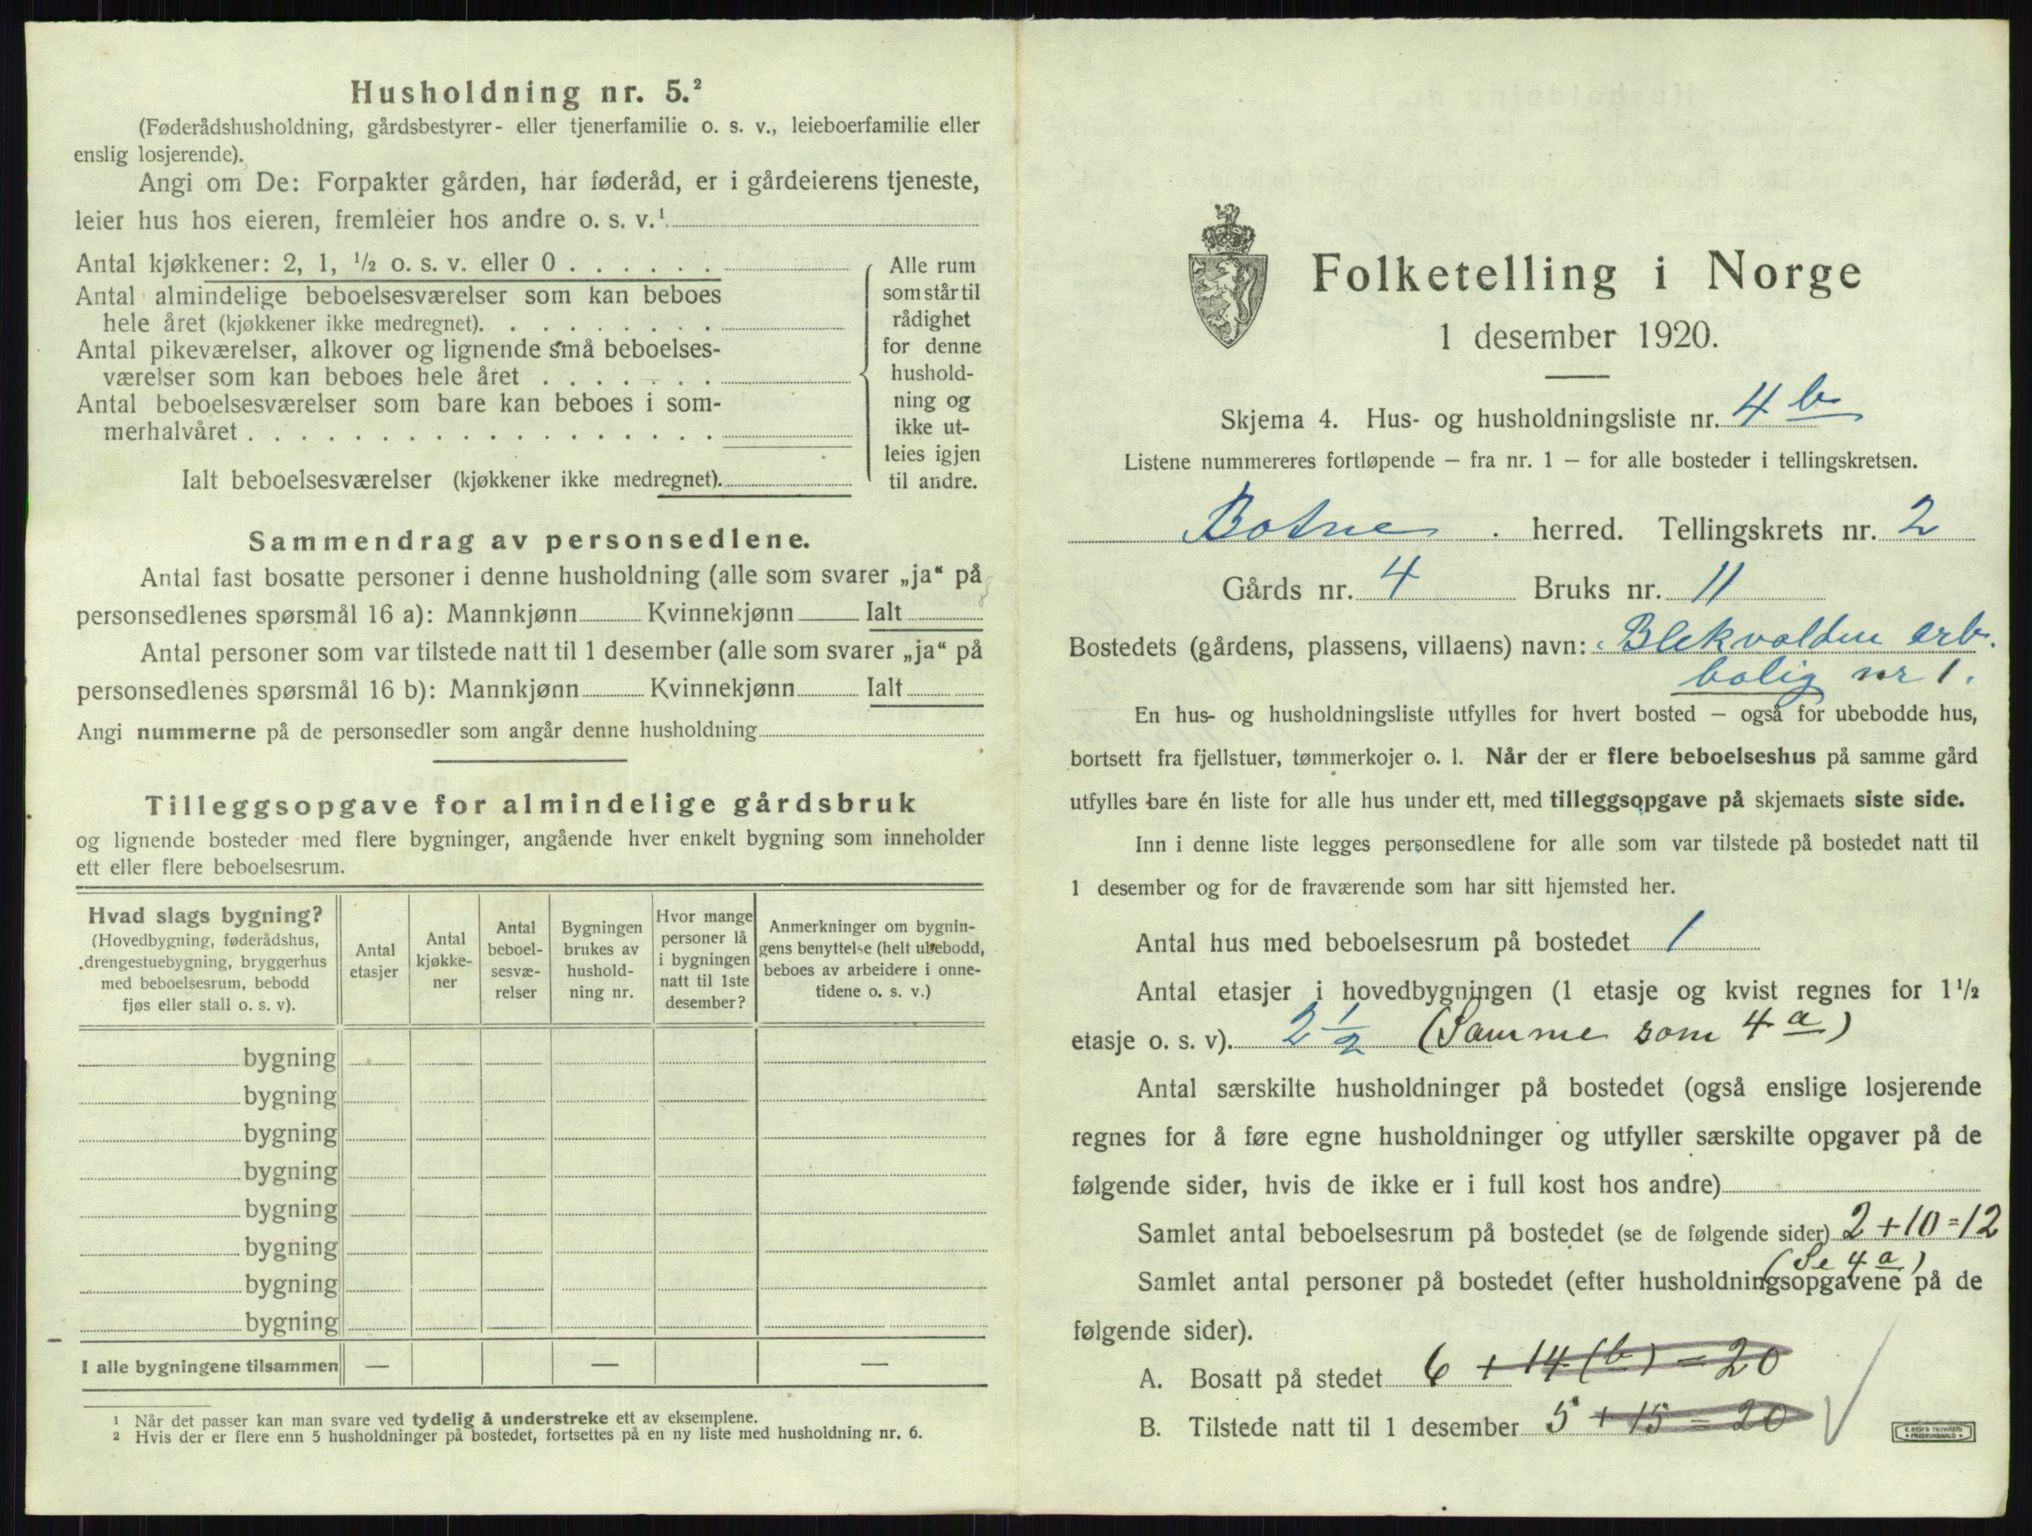 Husholdning nr. 5.²
(Føderådshusholdning, gårdsbestyrer- eller tjenerfamilie o. s. v., leieboerfamilie eller
enslig losjerende).
Angi om De: Forpakter gården, har føderåd, er i gårdeierens tjeneste,
leier hus hos eieren, fremleier hos andre o. s. v.¹
Antal kjøkkener: 2, 1, ½ o. s. v. eller 0 . . . . . .
Antal almindelige beboelsesværelser som kan beboes
hele året (kjøkkener ikke medregnet). . . . . . . . .
Antal pikeværelser, alkover og lignende små beboelses-
værelser som kan beboes hele året . . . . . . .
Antal beboelsesværelser som bare kan beboes i som-
merhalvåret . . . . . . . . . . . . . . . . . .
Alle rum
som står til
rådighet
for denne
hushold-
ning og
ikke ut-
leies igjen
til andre.
Ialt beboelsesværelser (kjøkkener ikke medregnet).
Sammendrag av personsedlene.
Antal fast bosatte personer i denne husholdning (alle som svarer „ja“ på
personsedlenes spørsmål 16 a): Mannkjønn Kvinnekjønn Ialt
Antal personer som var tilstede natt til 1 desember (alle som svarer „ja“ på
personsedlenes spørsmål 16 b): Mannkjønn Kvinnekjønn Ialt
Angi nummerne på de personsedler som angår denne husholdning
Tilleggsopgave for almindelige gårdsbruk
og lignende bosteder med flere bygninger, angående hver enkelt bygning som inneholder
ett eller flere beboelsesrum.
Hvad slags bygning?
(Hovedbygning, føderådshus,
drengestuebygning, bryggerhus
med beboelsesrum, bebodd
fjøs eller stall o. s. v).
Antal
etasjer
Antal
kjøkke-
ner
Antal
beboel-
sesvæ-
relser
Bygningen
brukes av
hushold-
ning nr.
Hvor mange
personer lå
i bygningen
natt til 1ste
desember?
Anmerkninger om bygnin-
gens benyttelse (helt ubebodd,
beboes av arbeidere i onne-
tidene o. s. v.)
bygning
bygning
bygning
bygning
bygning
bygning
bygning
bygning
I alle bygningene tilsammen — — —
¹ Når det passer kan man svare ved tydelig å understreke ett av eksemplene.
² Hvis der er flere enn 5 husholdninger på bostedet, fortsettes på en ny liste med husholdning nr. 6.
Folketelling i Norge
1 desember 1920.
Skjema 4. Hus- og husholdningsliste nr. 4 b
Listene nummereres fortløpende – fra nr. 1 – for alle bosteder i tellingskretsen.
Botne . herred. Tellingskrets nr. 2
Gårds nr. 4 Bruks nr. 11
Bostedets (gårdens, plassens, villaens) navn: Blekvolden arb.
bolig nr 1.
En hus- og husholdningsliste utfylles for hvert bosted – også for ubebodde hus,
bortsett fra fjellstuer, tømmerkojer o. l. Når der er flere beboelseshus på samme gård
utfylles bare én liste for alle hus under ett, med tilleggsopgave på skjemaets siste side.
Inn i denne liste legges personsedlene for alle som var tilstede på bostedet natt til
1 desember og for de fraværende som har sitt hjemsted her.
Antal hus med beboelsesrum på bostedet 1
Antal etasjer i hovedbygningen (1 etasje og kvist regnes for 1½
etasje o. s. v). 2 ½ (Samme som 4 a)
Antal særskilte husholdninger på bostedet (også enslige losjerende
regnes for å føre egne husholdninger og utfyller særskilte opgaver på de
følgende sider, hvis de ikke er i full kost hos andre)
Samlet antal beboelsesrum på bostedet (se de følgende sider) 2 + 10 = 12
(Se 4 a)
Samlet antal personer på bostedet (efter husholdningsopgavene på de
følgende sider).
A. Bosatt på stedet 6 + 14 (b) = 20
B. Tilstede natt til 1 desember 5 + 15 = 20